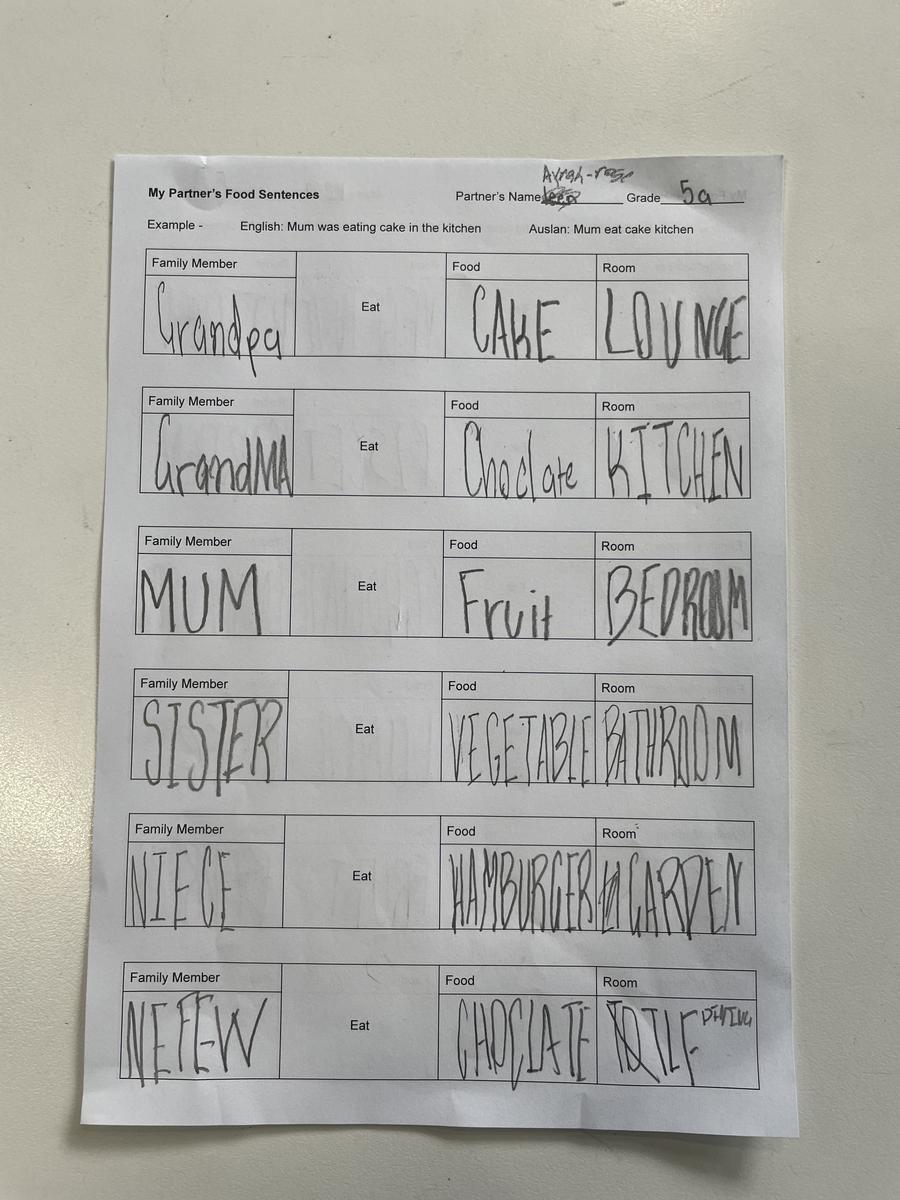 Ayrah-rose
My Partner's Food Sentences Partner's Name Grade 5a
Example - English: Mum was eating cake in the kitchen Auslan: Mum eat cake kitchen
Family Member Food Room
Grandpa Eat CAKE LOUNGE
Family Member Food Room
GrandMA Eat Choclate KITCHEN
Family Member Food Room
MUM Eat Fruit BEDROOM
Family Member Food Room
SISTER Eat VEGETABLE BATHROOM
Family Member Food Room
NIECE Eat HAMBURGER GARDEN
Family Member Food Room
NEFEW Eat CHOCLATE